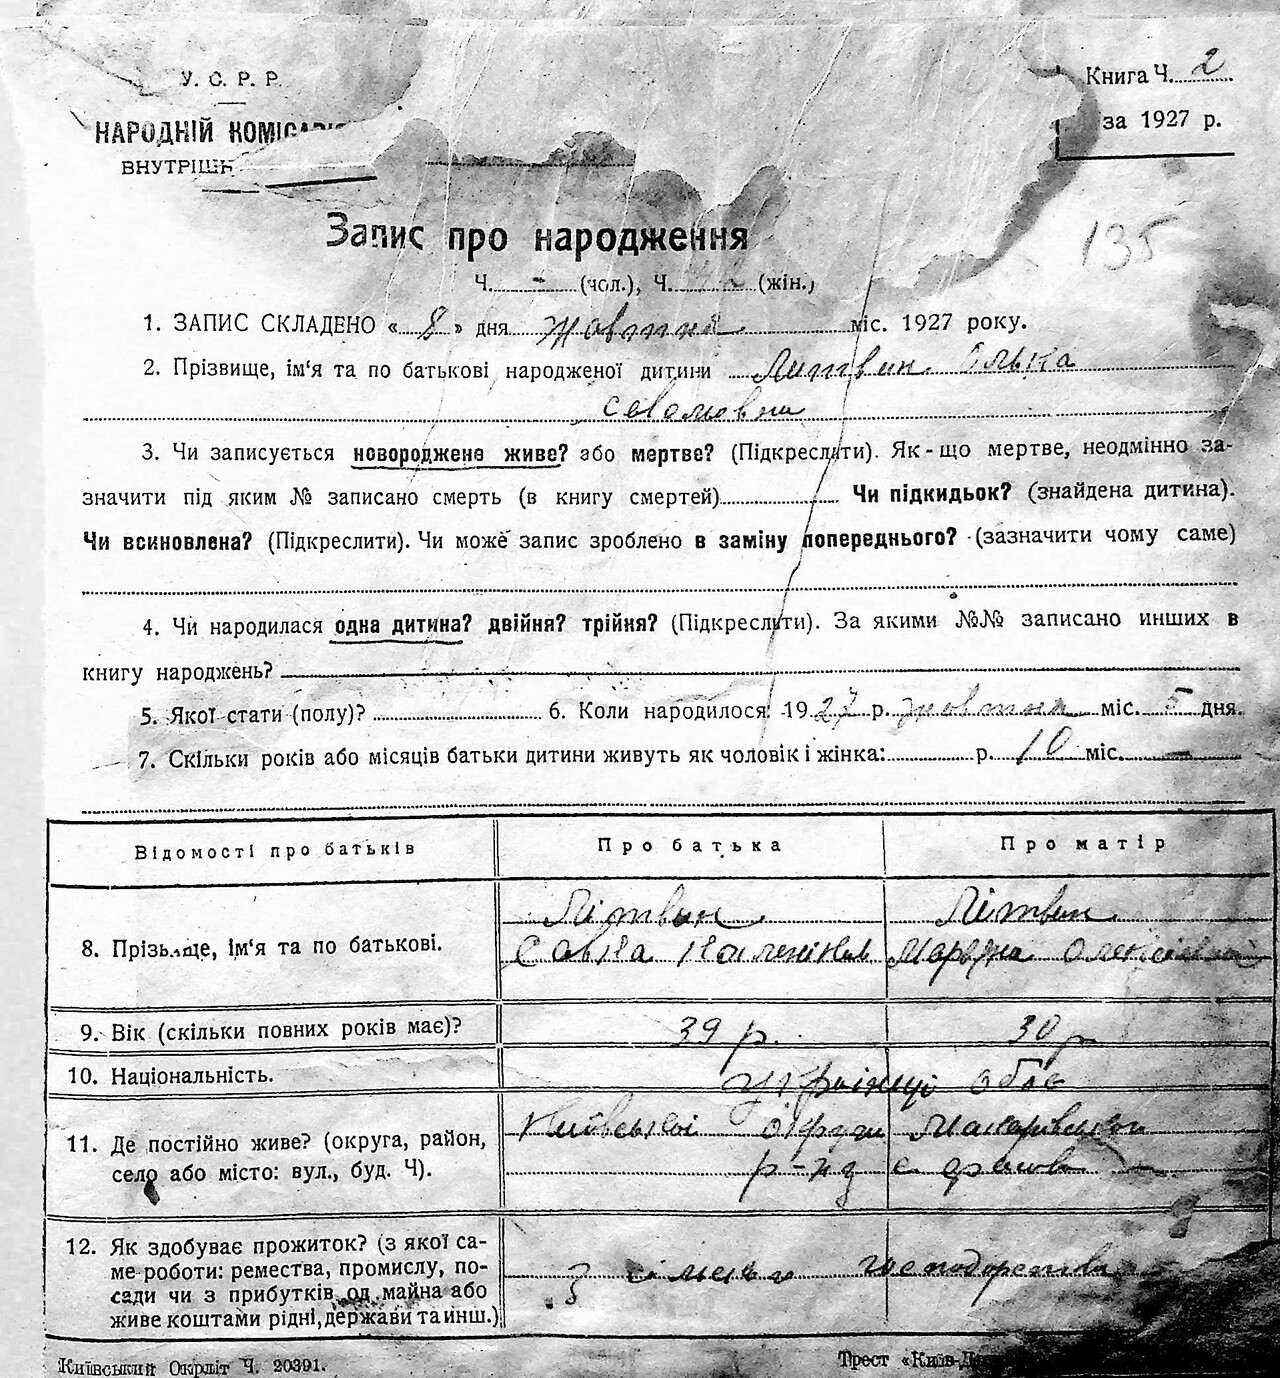 У. С. Р. Р.
Книга Ч. 2
НАРОДНІЙ КОМІСАРІ
за 1927 р.
ВНУТРІШН
135
Запис про народження
Ч. - (чол.), Ч. (жін.)
1. ЗАПИС СКЛАДЕНО « 8 » дня жовтня міс. 1927 року.
2. Прізвище, ім'я та по батькові народженої дитини Литвин Ольга
Савовна
3. Чи записується новороджене живе? або мертве? (Підкреслити). Як-що мертве, неодмінно за-
значити під яким № записано смерть (в книгу смертей) Чи підкидьок? (знайдена дитина).
Чи всиновлена? (Підкреслити). Чи може запис зроблено в заміну попереднього? (зазначити чому саме)
4. Чи народилася одна дитина? двійня? трійня? (Підкреслити). За якими №№ записано инших в
книгу народжень?
5. Якої стати (полу)? 6. Коли народилося: 1927 р. жовтня міс. 5 дня.
7. Скільки років або місяців батьки дитини живуть як чоловік і жінка: р. 10 міс. -
Відомості про батьків Про батька Про матір
Літвин Літвин
8. Прізвище, ім'я та по батькові. Савка
9. Вік (скільки повних років має)? 39 р. 30 р
10. Національність. українці обоє
11. Де постійно живе? (округа, район, Київської округи Макарівськ
село або місто: вул., буд. Ч). р-ну с
12. Як здобуває прожиток? (з якої са-
ме роботи: ремества, промислу, по- З сільськ господарства
сади чи з прибутків од майна або
живе коштами рідні, держави та инш.)
Київський Окрліт Ч. 20391. Трест «Київ-Д